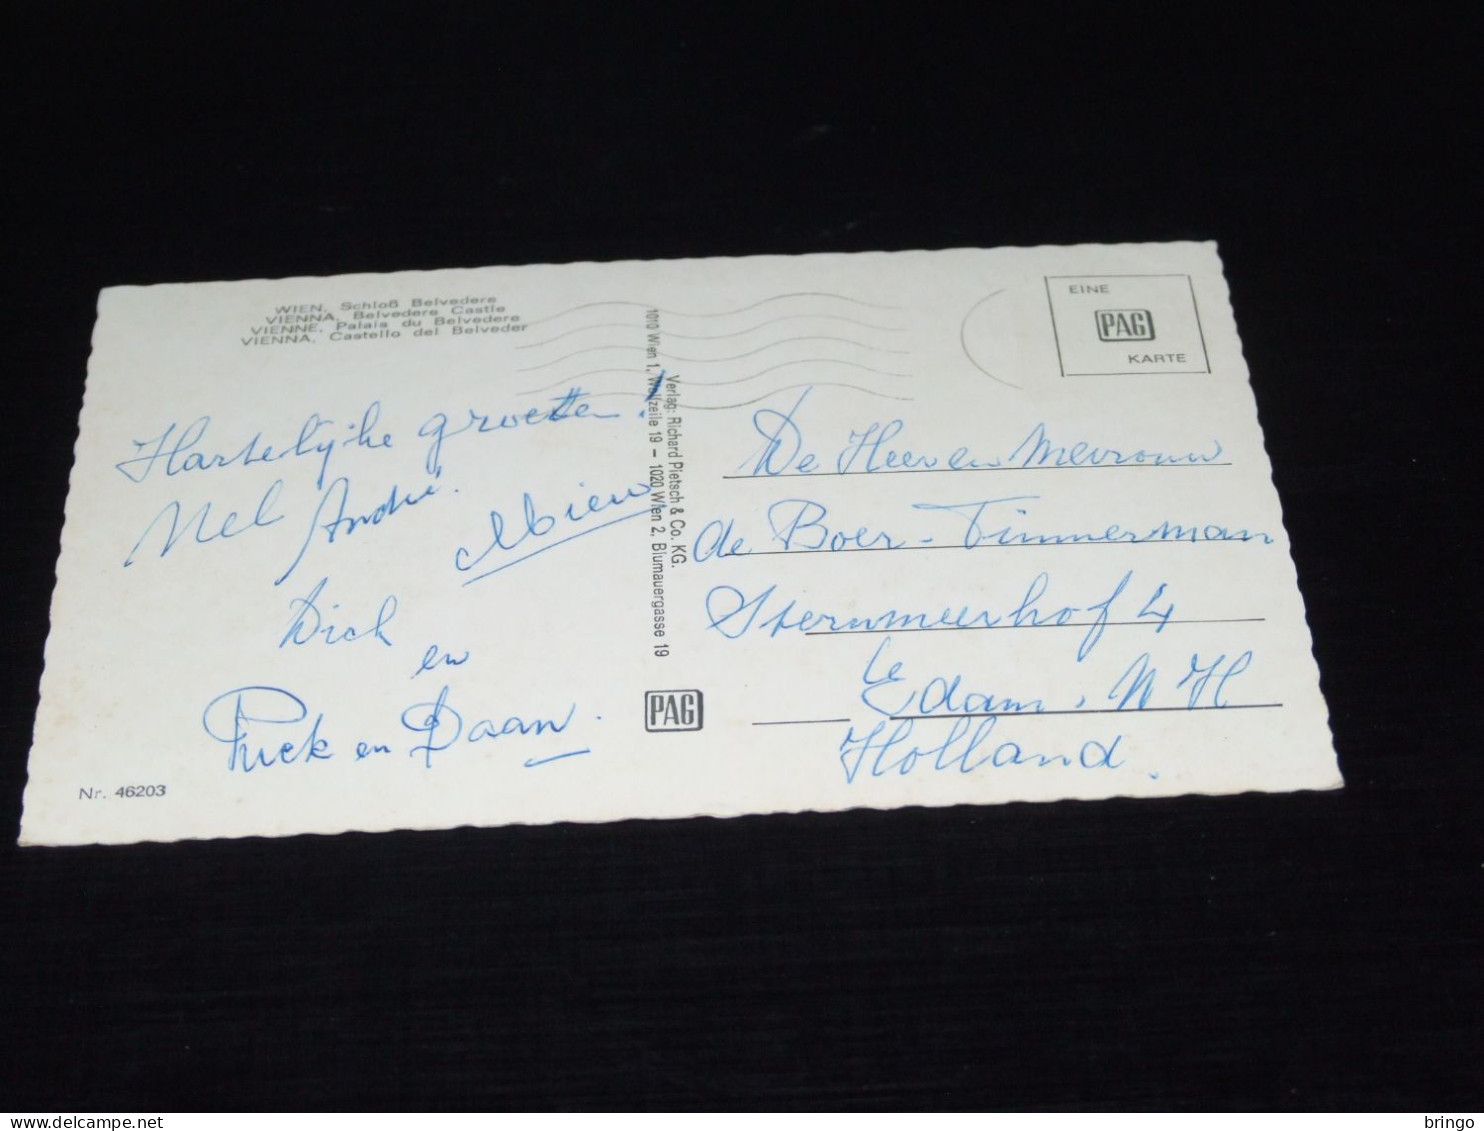 WIEN, Schloß Belvedere
VIENNA, Belvedere Castle
VIENNE, Palais du Belvedere
VIENNA, Castello del Belveder
Hartelijke groeten!
Nel André.
Mien
Dick
en
en Daan.
Nr. 46203
Verlag: Richard Pietsch & Co. KG.
1010 Wien 1, Wollzeile 19 – 1020 Wien 2, Blumauergasse 19
PAG
EINE
PAG
KARTE
De Heer en Mevrouw
de Boer-Timmerman
Sternmeerhof 4
te
Edam. N H
Holland.
bringo
www.delcampe.net